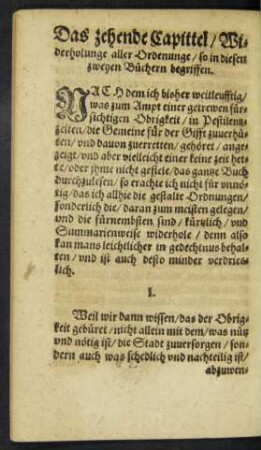 Das zehende Capittel / Wi-
derholunge aller Ordenunge / so in diesen
zweyen Büchern begriffen.
NACH dem ich bisher weitleufftig /
was zum Ampt einer getrewen für-
sichtigen Obrigkeit / in Pestilentz-
zeiten / die Gemeine für der Gifft zuuerhü-
ten / vnd dauon zuerretten / gehöret / ange-
zeigt / vnd aber vielleicht einer keine zeit het-
te / oder jhme nicht gefiele / das gantze Buch
durchzulesen / so erachte ich nicht für vnnö-
tig / das ich allhie die gestalte Ordnungen /
sonderlich die / daran zum meisten gelegen /
vnd die fürnembsten sind / kürtzlich / vnd
Summarienweise widerhole / denn also
kan mans leichtlicher in gedechtnus behal-
ten / vnd ist auch desto minder verdries-
lich.
I.
Weil wir dann wissen / das der Obrig-
keit gebüret / nicht allein mit dem / was nütz
vnd nötig ist / die Stadt zuuersorgen / son-
dern auch was schedlich vnd nachteilig ist /
abzuwen-